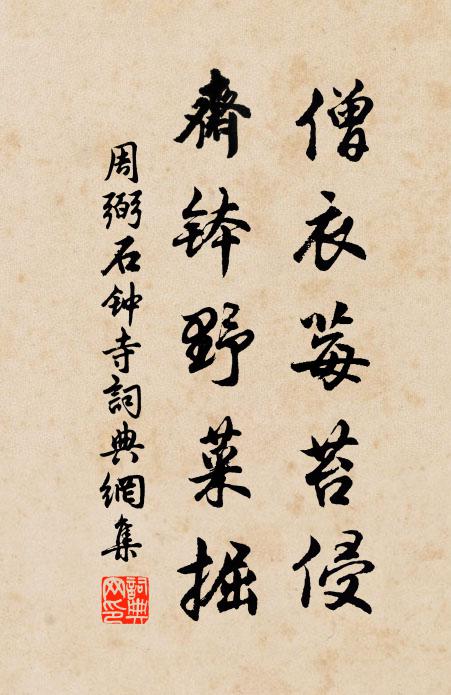 僧衣莓苔侵
齋鉢野菜掘
周弼石钟寺詞典網集
詞典网印